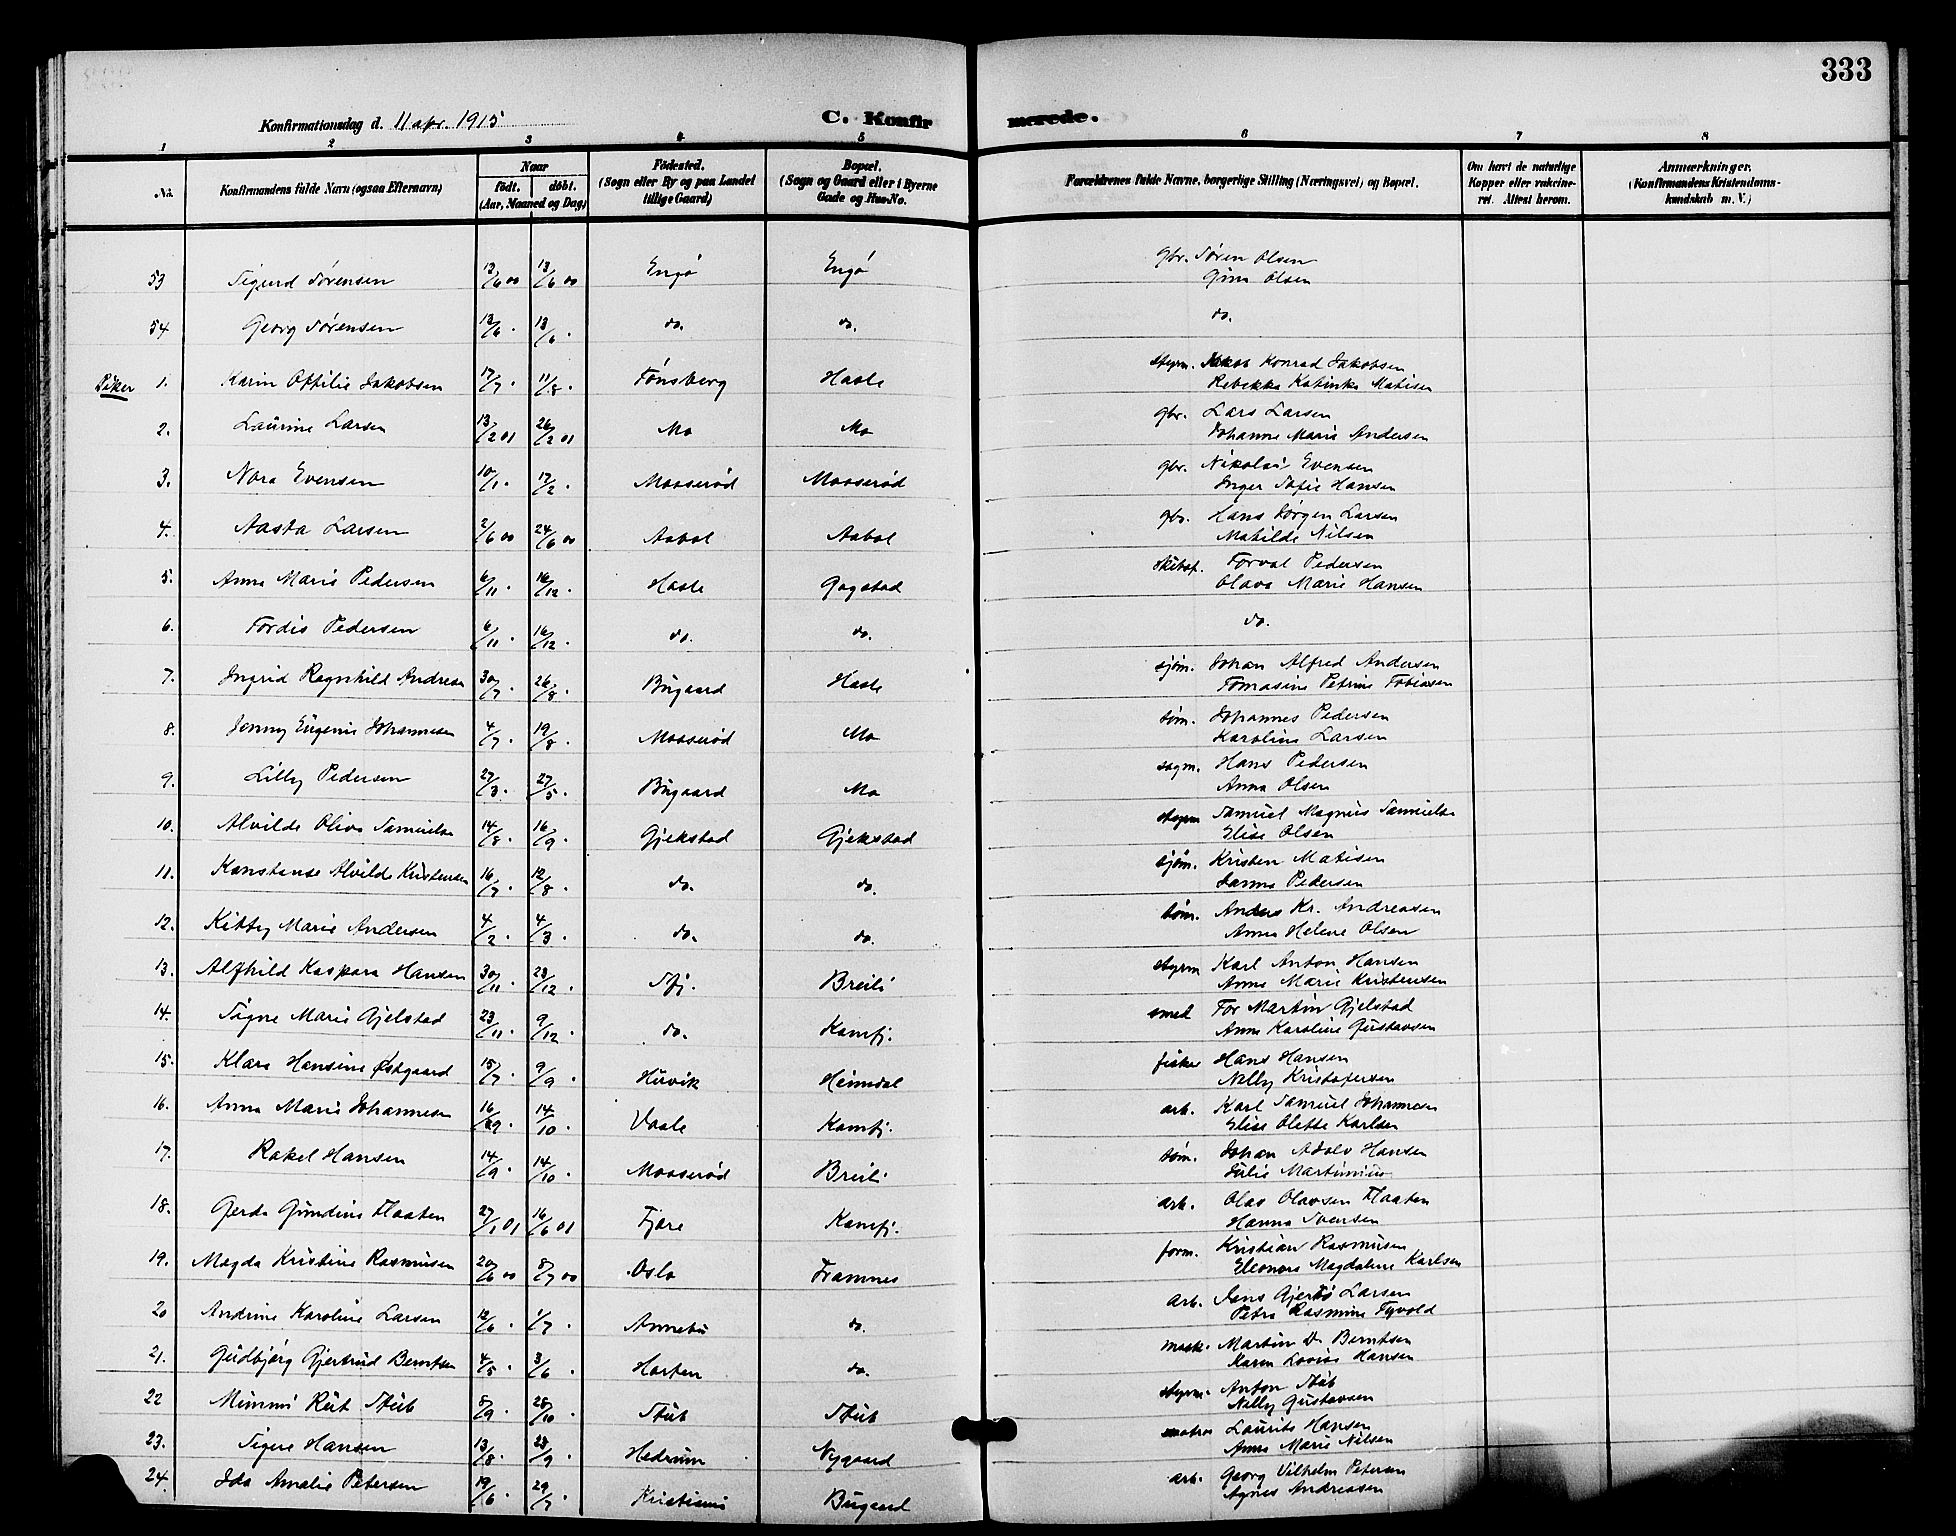 333
Konfirmationsdag d. 11 apr. 1915 C. Konfirmerede.
1 2 3 4 5 6 7 8
No. Konfirmandens fulde Navn (ogsaa Efternavn) Naar født. døbt. (Aar, Maaned og Dag) Fødested. (Sogn eller By og paa Landet tillige Gaard) Bopæl. (Sogn og Gaard eller i Byerne Gade og Hus-No. Forældrenes fulde Navne, borgerlige Stilling (Næringsvei) og Bopæl. Om havt de naturlige Kopper eller vakcineret. Attest herom. Anmærkninger. (Konfirmandens Kristendomskundskab m. V.)
53 Sigurd Sørensen 13/6 00 13/6 00 Engø Engø gbr. Søren Olsen
Gina Olsen
54 Georg Sørensen 13/6 . 13/6 . do. do. do.
Piker 1. Karin Ottilie Jakobsen 17/7 . 11/8 . Tønsberg Hasle styrm. Jakob Konrad Jakobsen
Rebekka Katinka Matisen
2. Laurine Larsen 13/2 01 26/2 01 Mo Mo gbr. Lars Larsen
Johanne Marie Andersen
3. Nora Evensen 10/1 . 17/2 . Moaserød Moaserød gbr. Nikolai Evensen
Inger Sofie Hansen
4. Aasta Larsen 2/6 00 24/6 00 Aabol Aabol gbr. Hans Jørgen Larsen
Matilde Nilsen
5. Anna Marie Pedersen 6/11 . 16/12 . Hasle Gogstad skibsf. Torval Pedersen
Olava Marie Hansen
6. Tordis Pedersen 6/11 . 16/12 . do. do. do.
7. Ingrid Ragnhild Andresen 30/7 . 26/8 . Bugaard Hasle sjøm. Johan Alfred Andersen
Tomasine Petrine Tobiasen
8. Jenny Eugenie Johannesen 4/7 . 19/8 . Moaserød Mo tøm. Johannes Pedersen
Karoline Larsen
9. Lilly Pedersen 27/3 . 27/5 . Bugaard Mo sagm. Hans Pedersen
Anna Olsen
10. Alvilde Oliva Samuelse 14/8 . 16/9 . Gjekstad Gjekstad styrm Samuel Magnus Samuelse
Elise Olsen
11. Konstanse Alvilde Kristensen 16/7 . 12/8 . do. do. sjøm. Kristen Matisen
Janna Pedersen
12. Kitty Marie Andersen 4/2 . 4/3 . do. do. tøm. Anders Kr. Andreasen
Anna Helene Olsen
13. Alfhild Kaspara Hansen 30/11 . 23/12 . Sfj. Breili styrm Karl Anton Hansen
Anna Marie Kristensen
14. Signe Marie Gjelstad 23/11 . 9/12 . do. Kamfj. smed Tor Martin Gjelstad
Anna Karoline Gustavsen
15. Klara Hansine Østgaard 15/7 . 9/9 . Huvik Heimdal fisker Hans Hansen
Nilly Kristofersen
16. Anna Marie Johannesen 16/9 . 14/10 . Vaale Kamfj. arb. Karl Samuel Johannesen
Elise Olette Karlsen
17. Rakel Hansen 14/9 . 14/10 . Moaserød Breili tøm. Johan Adolv Hansen
Julie Martinius
18. Gerda Gundine Flaaten 27/1 01 16/6 01 Tjøre Kamfj. arb. Olav Olavsen Flaaten
Hanna Ivensen
19. Magda Kristine Rasmusen 20/6 00 8/7 00 Oslo Framnes form. Kristian Rasmusen
Eleonora Magdalene Karlsen
20 Andrine Karoline Larsen 12/6 . 1/7 . Annebu do. arb. Jens Gjertø Larsen
Petra Rasmine Tyvold
21. Gudbjørg Gjertrud Berntsen 4/5 . 3/6 . Horten do. mask. Martin D. Berntsen
Karen Lovise Hansen
22 Mimmi Rut Stub 8/9 . 28/10 . Stub Stub styrm. Anton Stub
Nilly Gustavsen
23. Sigve Hansen 13/8 . 23/9 . Hedrum Nygaard matros Laurits Hansen
Anna Marie Nilsen
24. Ida Amalie Petersen 19/6 . 29/7 . Kristiania Bugaard arb. Georg Vilhelm Petersen
Agnes Andreasen